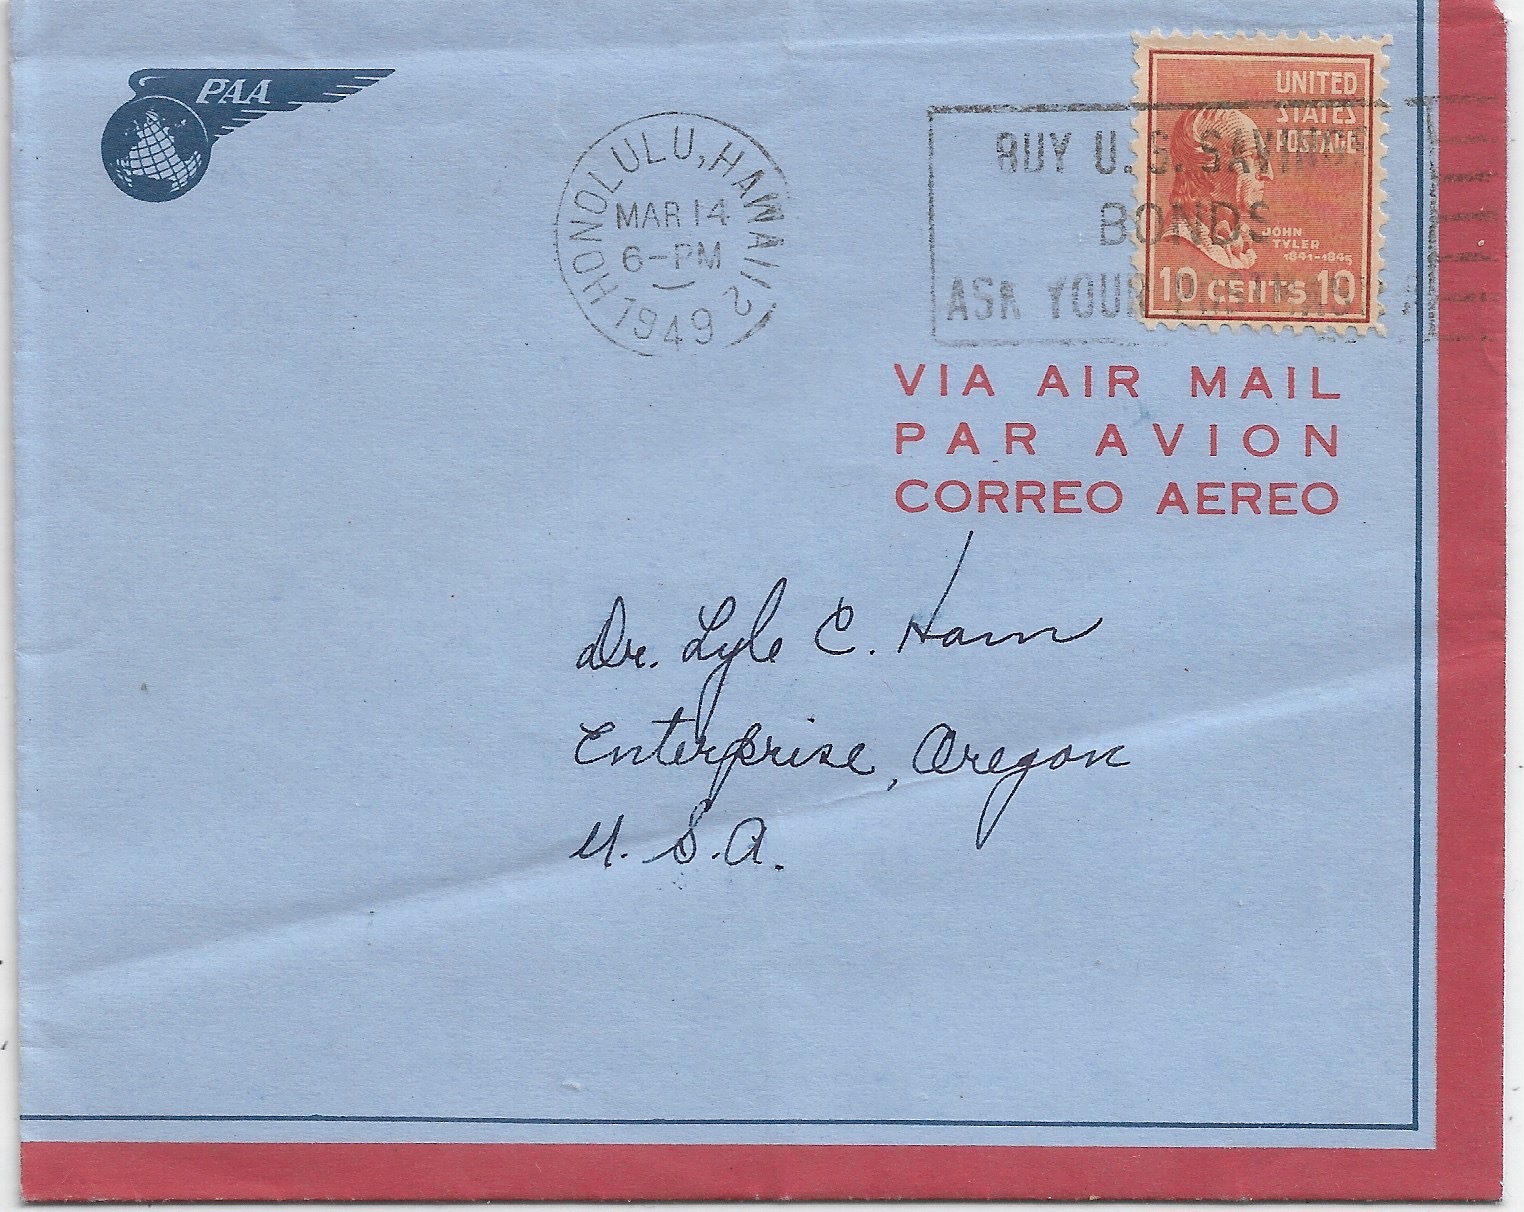 PAA
HONOLULU, HAWAII 2
MAR 14
6-PM
1949
BUY U.S. SAVINGS
BONDS
ASK YOUR
UNITED
STATES
POSTAGE
JOHN
TYLER
1841-1845
10 CENTS 10
VIA AIR MAIL
PAR AVION
CORREO AEREO
Dr. Lyle C. Ham
Enterprise, Oregon
U.S.A.